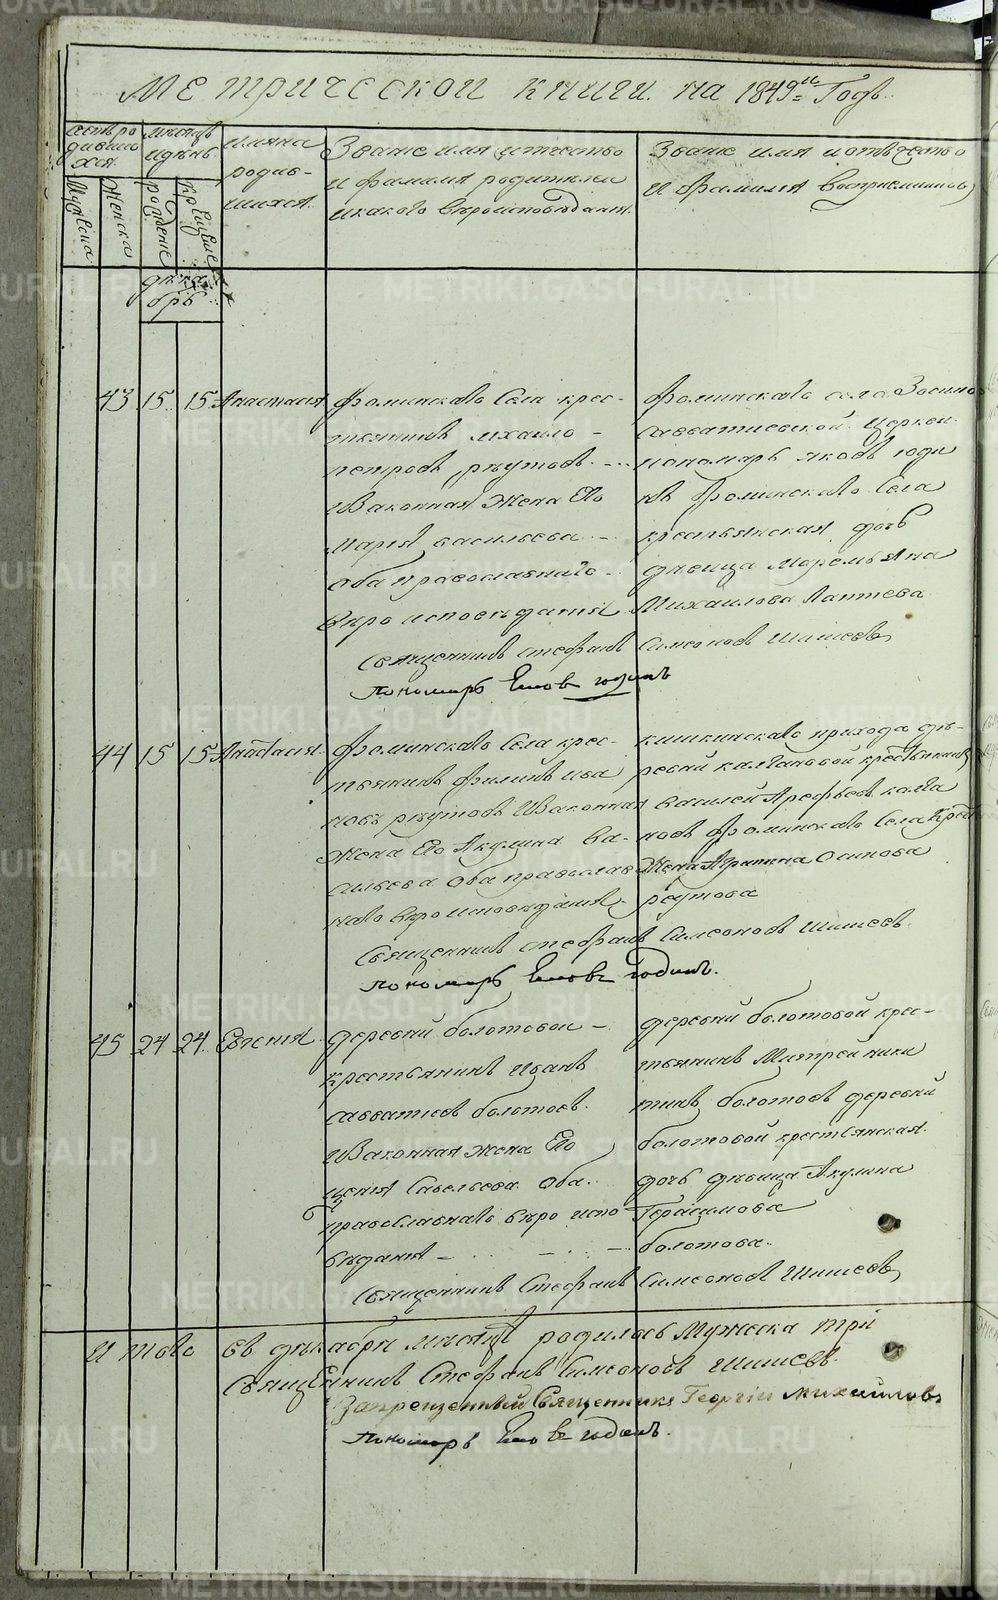 Метрической книги на 1849й Годъ
Щетъ ро
дивших
хся
Мужеска
Женска
Месецъ
и день
рождение
Крещение
имяна
родив-
шихся
Звание имя и отчество
и Фамилия родителей
и какого вероисповедания
Звание имя и отъчество
И Фамилия восприемников
декаб
брь
43 15 15 Анастасия
Фоминскаго Села крес-
тьянинъ михаило -
петровъ реутовъ -
И Законная Жена Его
Мария васильева -
оба православнаго -
Веро исповедания
Фоминскаго села Зосимо
савватиевской Церкви
пономарь яковъ юди
нъ Фоминскаго Села
крестьянская дочь
девица Маремьяна
Михаилова Лаптева
Священникъ стефанъ Симеоновъ Шишевъ
пономарь Яков юдинъ
44 15 15 Анастасия
Фоминскаго Села крес-
тьянинъ Филипъ ива
новъ реутовъ И Законная
Жена Его Акулина ва-
сильева Оба православ
наго веро исповедания
кишкинскаго прихода де-
ревни калгановой крестьянинъ
василей Арефьевъ калга
новъ Фоминскаго Села Крест
Жена Агрипина Осипова
реутова
Священникъ стефанъ Симеоновъ Шишевъ
пономарь Яковъ юдинъ.
45 24 24 Евгения
деревни болотовой -
крестьянинъ Иванъ
савватиевъ болотовъ.
И Законная жена Его
Савельева Оба
православнаго веро испо
ведания -
деревни болотовой крес-
тьянинъ Митрей ники
тинъ болотовъ деревни
болотовой крестьянская
дочь девица Акулина
Герасимова
болотова.
Священникъ Стефанъ Симеоновъ Шишевъ
И того въ декабри месяце родилось Мужеска три
Священникъ Стефанъ Симеоновъ Шишевъ
Запрещенный Священникъ Георгий Михайловъ
пономарь Яковъ юдинъ.
METRIKI.GASO-URAL.RU